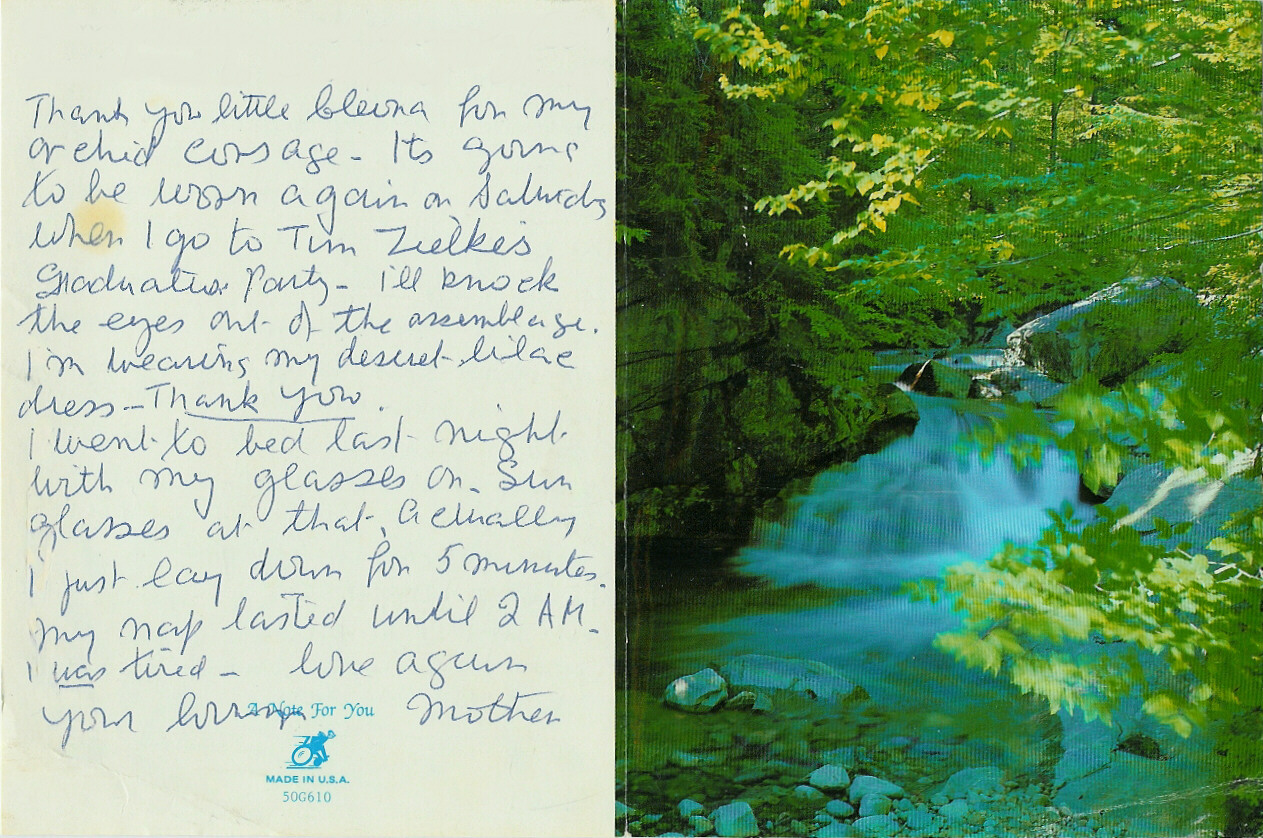 Thank you little for my
orchid corsage - Its going
to be worn again on Saturday
when I go to Tim Zielke's
Graduation Party - i'll knock
the eyes out of the assemblage.
I'm wearing my desert lilac
dress - Thank you.
I went to bed last night
with my glasses on - Sun
glasses at that, Actually
I just lay down for 5 minutes.
My nap lasted until 2 AM.
I was tired - love again
your Mother
A Note For You
MADE IN U.S.A.
50G610